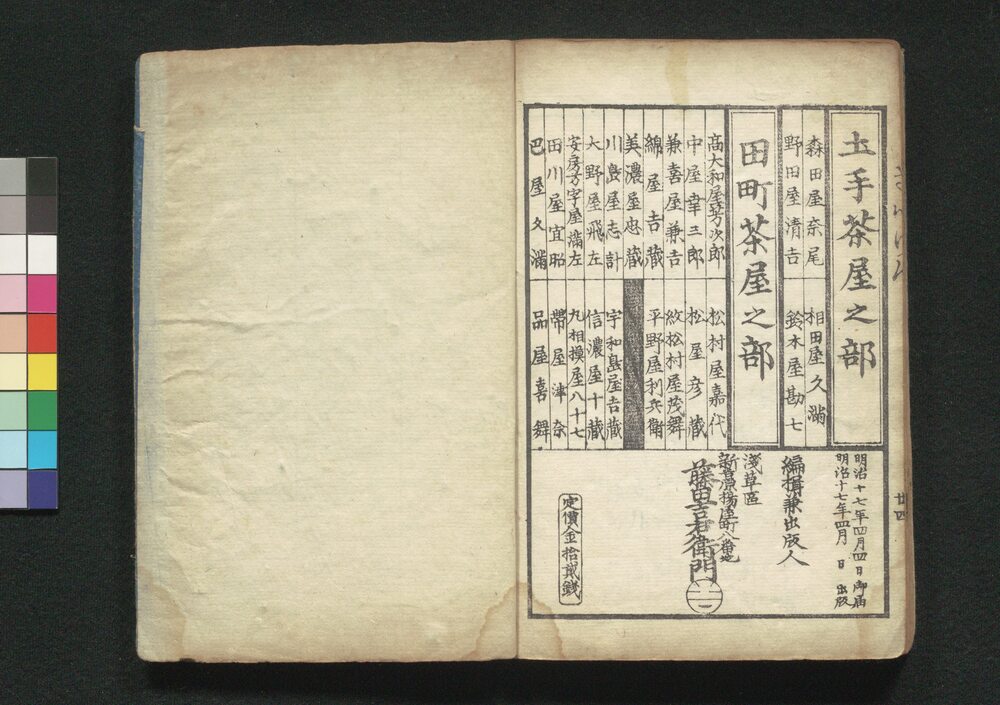 土手茶屋之部
森田屋奈尾
相田屋久満
野田屋清吉
鈴木屋勘七
田町茶屋之部
高大和屋芳次郎
松村屋嘉代
中屋幸三郎
松屋彦蔵
兼喜屋兼吉
紋松村屋茂舞
綿屋吉蔵
平野屋利兵衛
美濃屋忠蔵
川島屋志計
宇和島屋吉蔵
大野屋飛左
信濃屋十蔵
安房万字屋満左
九相摸屋八十七
西川屋宜昭
帶屋津奈
巴屋久満
品屋喜舞
明治十七年四月四日御届
明治十七年四月 日 出版
編揖兼出版人
淺草區
新吉原揚屋町八番地
藤田吉右衛門
定價金拾貳錢
廿四